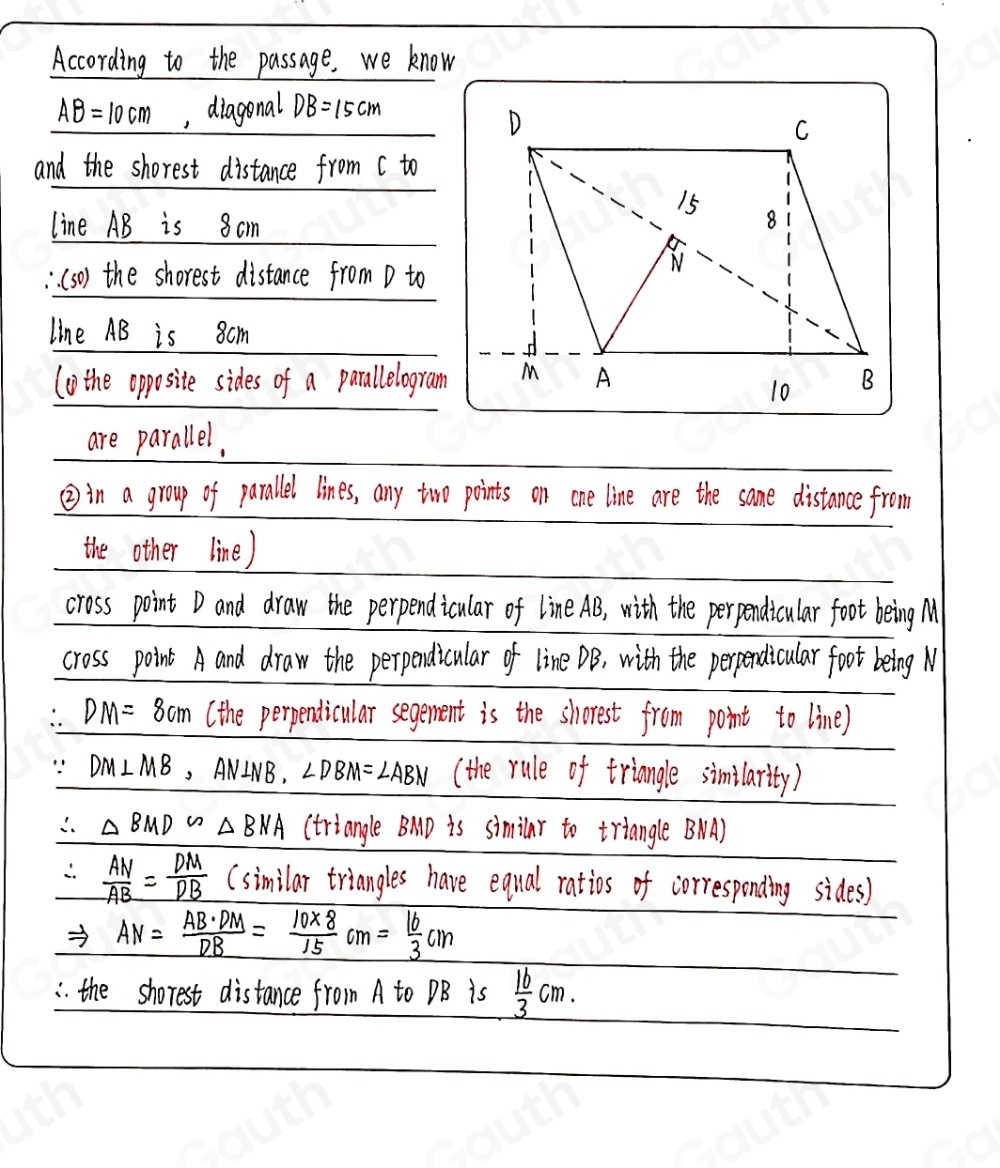 According to the passage, we know
AB=10cm , diagonal DB=15cm
and the shorest distance from C to
line AB is 8cm
∴(so) the shorest distance from D to
line AB is 8cm
(① the opposite sides of a parallelogram
are parallel.
② in a group of parallel lines, any two points on one line are the same distance from
the other line)
D
C
15
8
N
M
A
10
B
cross point D and draw the perpendicular of line AB, with the perpendicular foot being M
cross point A and draw the perpendicular of line DB, with the perpendicular foot being N
∴ DM= 8cm (the perpendicular segement is the shorest from point to line)
∵ DM⊥MB, AN⊥NB, ∠DBM=∠ABN (the rule of triangle similarity)
∴ △BMD ∽ △BNA (triangle BMD is similar to triangle BNA)
∴ AN/AB = DM/DB (similar triangles have equal ratios of corresponding sides)
⇒ AN = AB·DM/DB = 10×8/15 cm = 16/3 cm
∴ the shorest distance from A to DB is 16/3 cm.